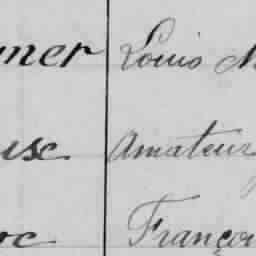 mer Louis M
use Amateur
oc Françoi